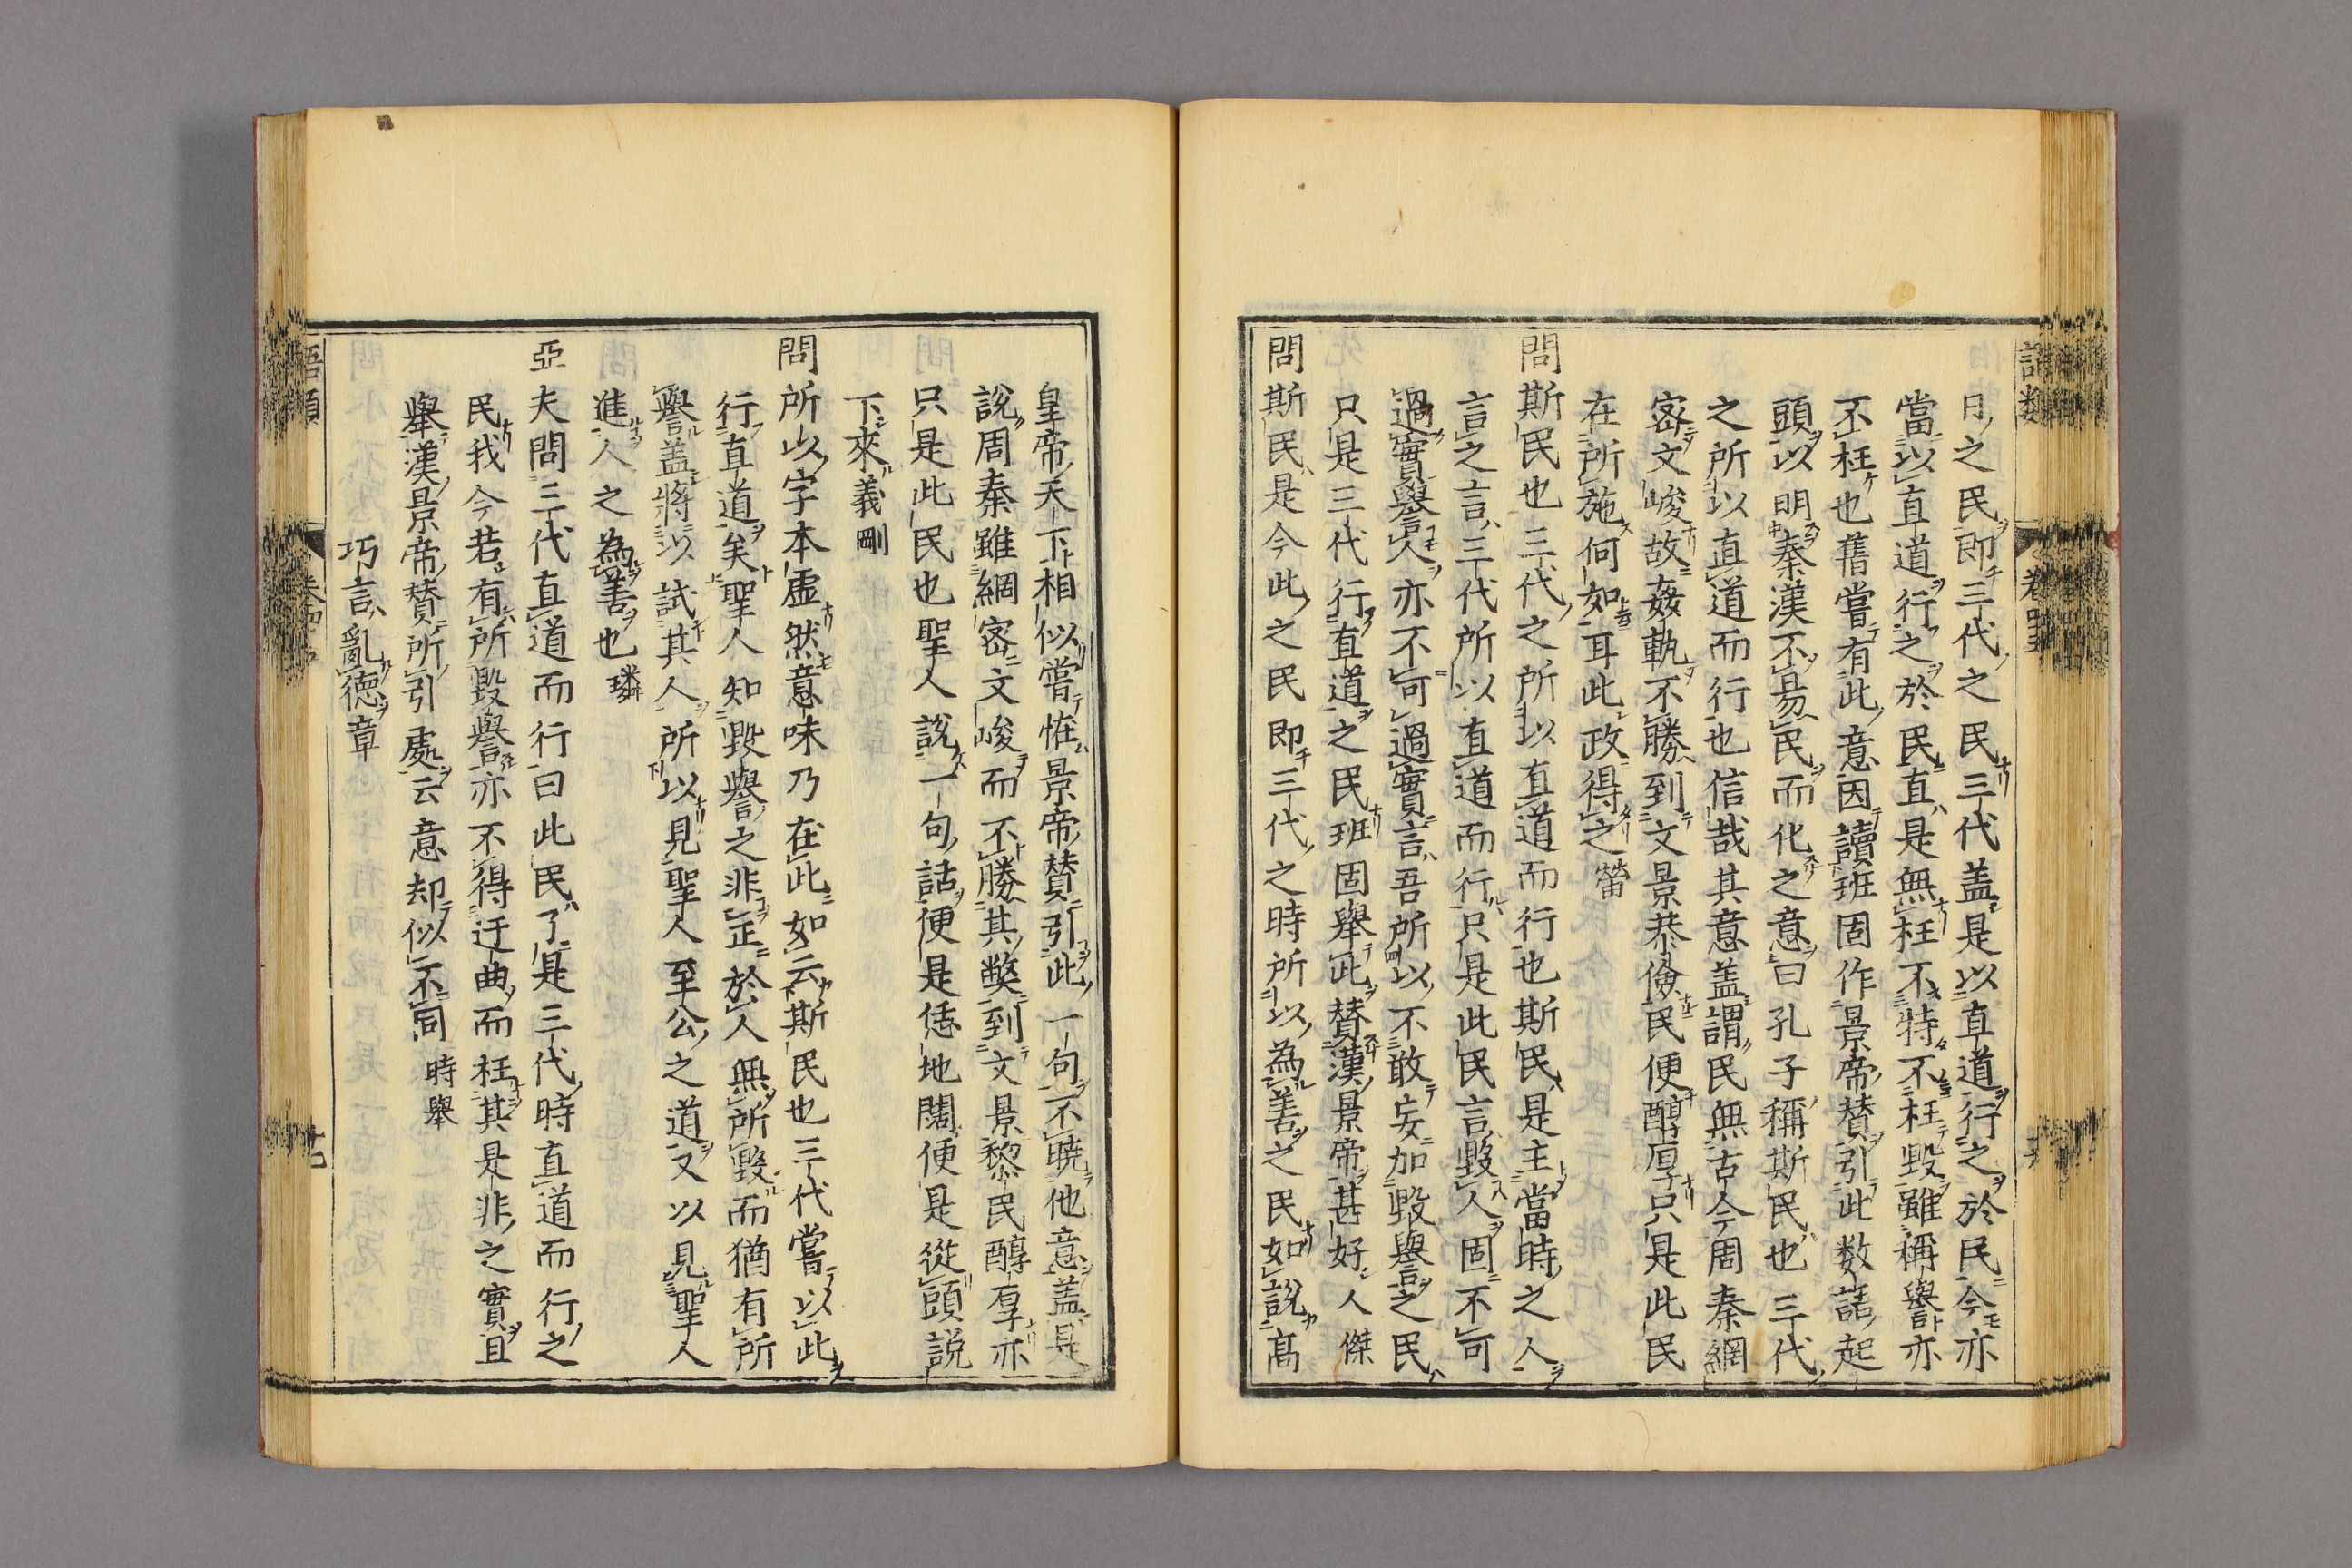 日之民即三代之民三代盖是以直道行之於民今亦
當以直道行之於民直是無枉不特不枉毀雖稱譽亦
不枉也舊嘗有此意因讀班固作景帝賛引此数語起
頭以明秦漢不昜民而化之意曰孔子稱斯民也三代
之所以直道而行也信哉其意盖謂民無古今周秦網
宻文峻故姦軌不勝到文景恭儉民便醇厚只是此民
在所施何如耳此政得之 㽦
問斯民也三代之所以直道而行也斯民是主當時之人
言之言三代所以直道而行只是此民言毀人固不可
過實譽人亦不可過實言吾所以不敢妄加毀譽之民
只是三代行直道之民班固舉此賛漢景帝甚好 人傑
問斯民是今此之民即三代之時所以為善之民如說高
皇帝天下相似嘗恠景帝賛引此一句不曉他意盖是
說周秦雖網宻文峻而不勝其獘到文景黎民醇厚亦
只是此民也聖人說一句話便是恁地闊便是從頭説
下來 義剛
問所以字本虛然意味乃在此如云斯民也三代嘗以此
行直道矣聖人知毀譽之非正於人無所毀而猶有所
譽盖將以試其人所以見聖人至公之道又以見聖人
進人之為善也 璘
亞夫問三代直道而行曰此民了是三代時直道而行之
民我今若有所毀譽亦不得迂曲而枉其是非之實且
舉漢景帝賛所引處云意却似不同 時舉
巧言亂徳章